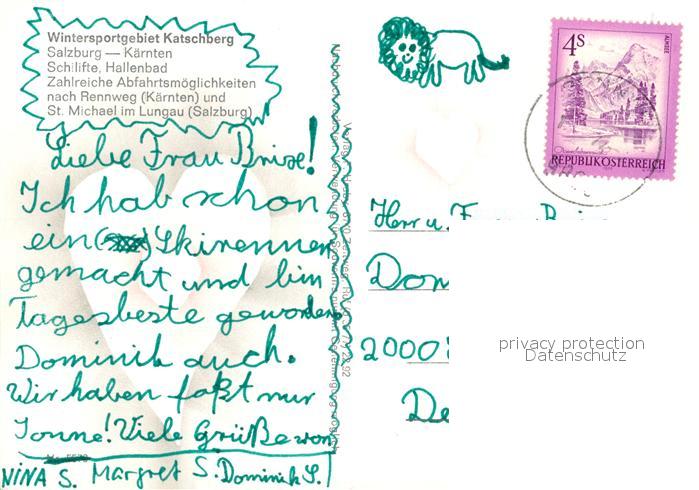 Wintersportgebiet Katschberg
Salzburg — Kärnten
Schilifte, Hallenbad
Zahlreiche Abfahrtsmöglichkeiten
nach Rennweg (Kärnten) und
St. Michael im Lungau (Salzburg)
Liebe Frau Brise!
Ich hab schon
ein Skirennen
gemacht und bin
Tagesbeste geworden
Dominik auch.
Wir haben faßt nur
Sonne! Viele Grüße von
NINA S. Margret S. Dominik S.
4S
ALMSEE
REPUBLIK ÖSTERREICH
Herr u.
Don
2000
De
privacy protection
Datenschutz